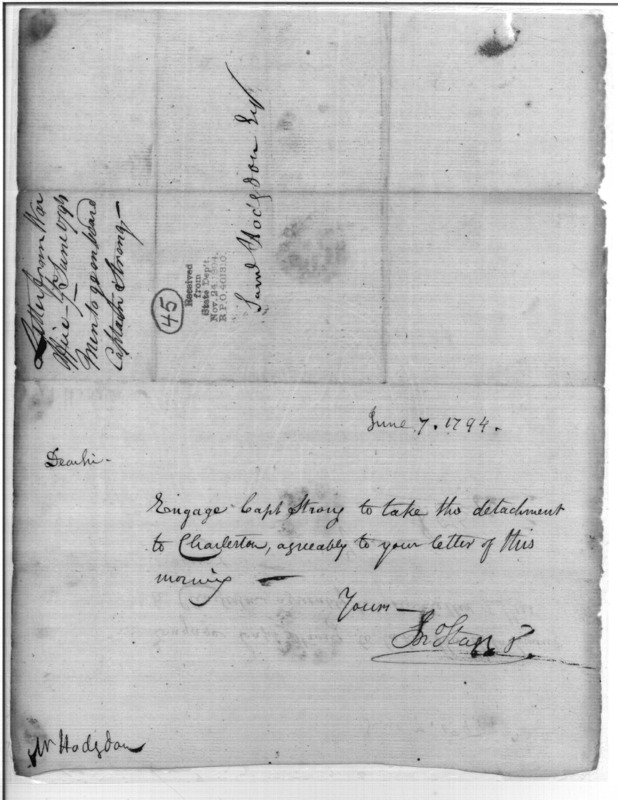 Letter from War
Office 7 June 1794
Men to go on board
Captain Strong
45
Received
from
State Dep't.
R.P.O.
Saml Hodgdon Esq
June 7. 1794.
Dear Sir
Engage Capt Strong to take the detachment
to Charleston, agreeably to your letter of this
morning
Yours
Jno Stagg Jr.
Mr Hodgdon